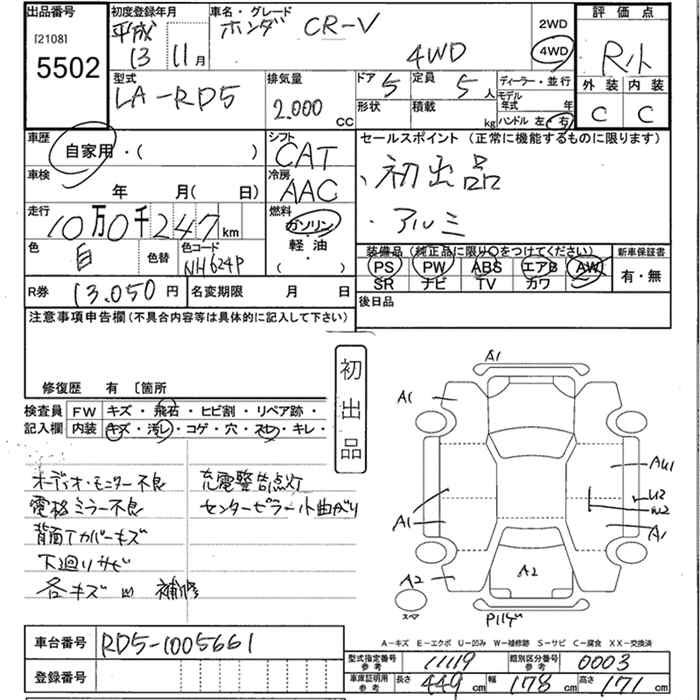 出品番号
[2108]
5502
初度登録年月
平成
13 11月
車名・グレード
ホンダ CR-V
4WD
2WD
4WD
評価点
R小
外装 内装
C C
型式
LA-RD5
排気量
2.000
CC
ドア 5
定員 5人
形状
積載 kg
ディーラー・並行
モデル年式 年
ハンドル 左・右
車歴
自家用・( )
シフト
CAT
セールスポイント(正常に機能するものに限ります)
、初出品
・アルミ
車検
年 月( 日)
冷房
AAC
走行
10万0千247km
燃料
ガソリン
軽油
( )
色
白
色替
色コード
NH624P
装備品(純正品に限り○をつけてください)
PS PW ABS エアB AW
SR ナビ TV カワ
新車保証書
有・無
R券 13.050円
名変期限 月 日
後日品
注意事項申告欄(不具合内容等は具体的に記入して下さい)
修復歴 有 〔箇所
初出品
検査員
記入欄
FW キズ・飛石・ヒビ割・リペア跡・
内装 キズ・汚レ・コゲ・穴・スレ・キレ・
オーディオ・モニター不良
充電警告点灯
電格ミラー不良
センターピラー小曲がり
背面Tカバーキズ
下廻りサビ
各キズ凹 補修
A1
A1
AU1
U2
W2
A1
A1
A2
A2
スペア
A-キズ E-エクボ U-凹み W-補修跡 S-サビ C-腐食 XX-交換済
車台番号 RD5-1005661
登録番号
型式指定番号
参考
11119
類別区分番号
参考
0003
車庫証明用
参考
長さ 449cm
幅 178cm
高さ 171cm